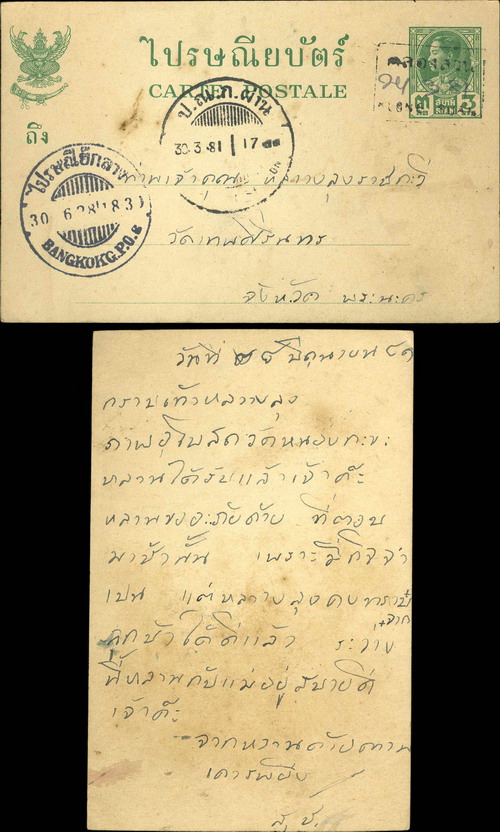 ไปรษณียบัตร์
CARTE POSTALE
สตางค์ 3
ถึง
30.3.81 17
ไปรษณีย์กลาง
30 6 81 18 30
BANGKOK G.P.O.
ท่านเจ้าคุณ
วัดเทพศิรินทร
จังหวัด พระนคร
วันที่ มิถุนายน ๘๑
กราบเท้าหลวงลุง
ภาพอุโบสถวัดหนอง
หลานได้รับแล้วเจ้าค๊ะ
หลานขออะภัยด้วย ที่ตอบ
มาช้านั้น เพราะมีกิจจำ
เปน แต่หลวงลุงคงทราบ
จาก
ได้ดีแล้ว ระวาง
นี้หลานกับแม่อยู่สบายดี
เจ้าค๊ะ
จากหลานด้วยความ
เคารพยิ่ง
ส.ช.